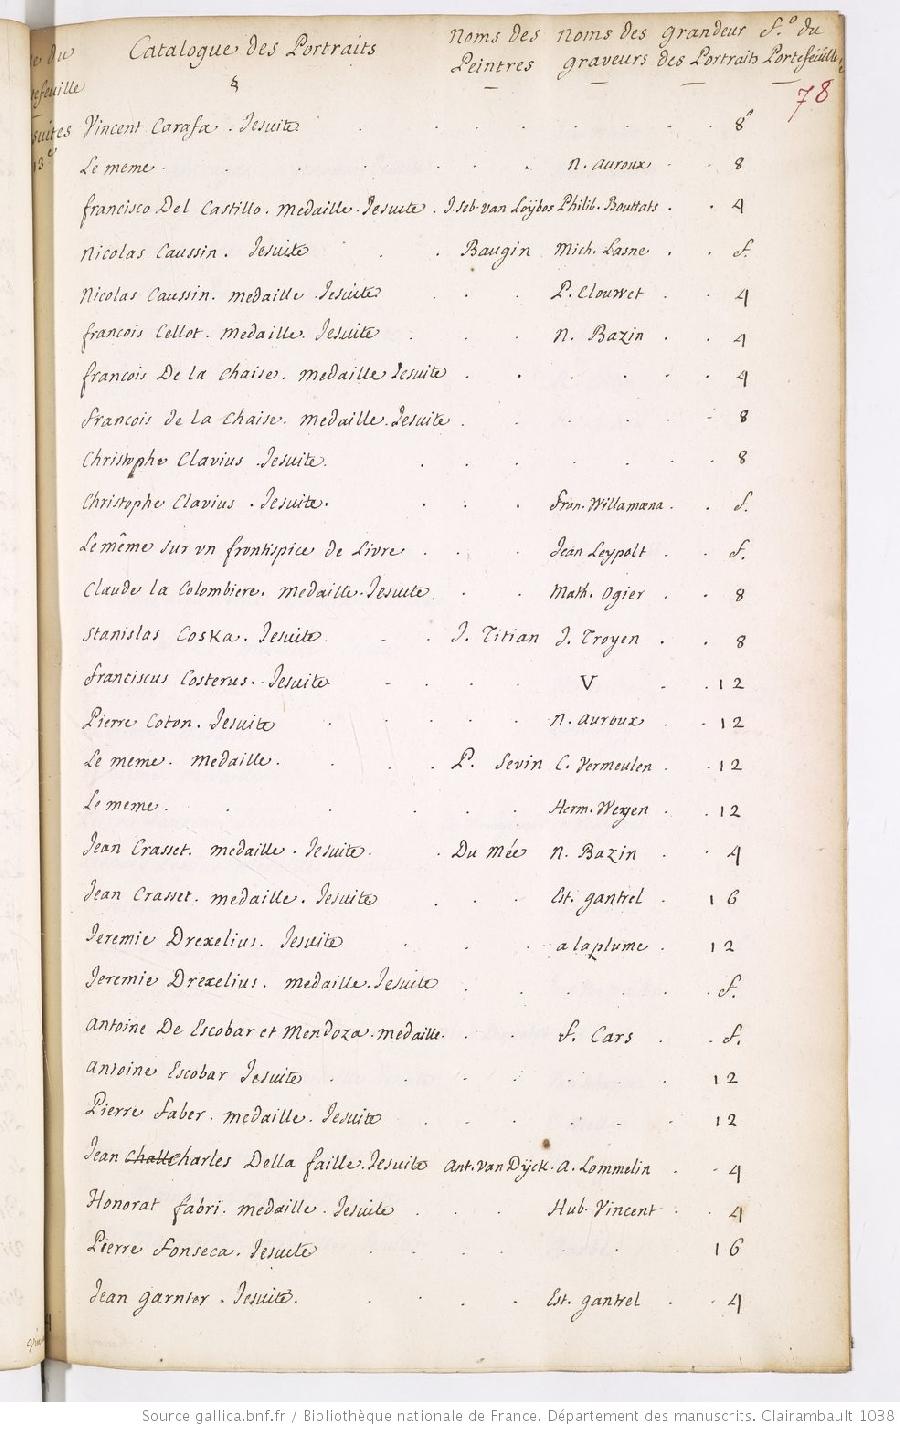 Catalogue des Portraits
§
noms des Peintres
noms des graveurs
grandeur des Portraits
f.º du Portefeüille
78
Vincent Carafa . Jesuite . 8º
Le meme . n. auroux . 8
francisco Del Castillo . medaille . Jesuite . J. Seb. van Loÿbos Philib. Bouttats . 4
Nicolas Caussin . Jesuite . Baugin Mich. Lasne . f.
Nicolas Caussin . medaille . Jesuite . P. Clouwet . 4
francois Cellot . medaille . Jesuite . n. Bazin . 4
francois De la Chaise . medaille Jesuite . 4
francois de la Chaise . medaille . Jesuite . 8
Christophe Clavius . Jesuite . 8
Christophe Clavius . Jesuite . fran. Willamana . f.
Le même sur vn frontispice de Livre . Jean Leypolt . f.
Claude la Colombiere . medaille . Jesuite . Math. Ogier . 8
Stanislas Coska . Jesuite . J. Titian J. Troyen . 8
franciscus Costerus . Jesuite . V . 12
Pierre Coton . Jesuite . n. auroux . 12
Le meme . medaille . P. Sevin C. Vermeulen . 12
Le meme . Herm. Weyen . 12
Jean Crasset . medaille . Jesuite . Du Mée n. Bazin . 4
Jean Crasset . medaille . Jesuite . Est. gantrel . 16
Jeremie Drexelius . Jesuite . a la plume . 12
Jeremie Drexelius . medaille . Jesuite . f.
Antoine De Escobar et Mendoza . medaille . f. Cars . f.
Antoine Escobar Jesuite . 12
Pierre Faber . medaille . Jesuite . 12
Jean Charles Della faille . Jesuite Ant. Van Dÿck . A. Lommelin . 4
Honorat fabri . medaille . Jesuite . Hub. Vincent . 4
Pierre Fonseca . Jesuite . 16
Jean garnier . Jesuite . Est. gantrel . 4
Source gallica.bnf.fr / Bibliothèque nationale de France. Département des manuscrits. Clairambault 1038